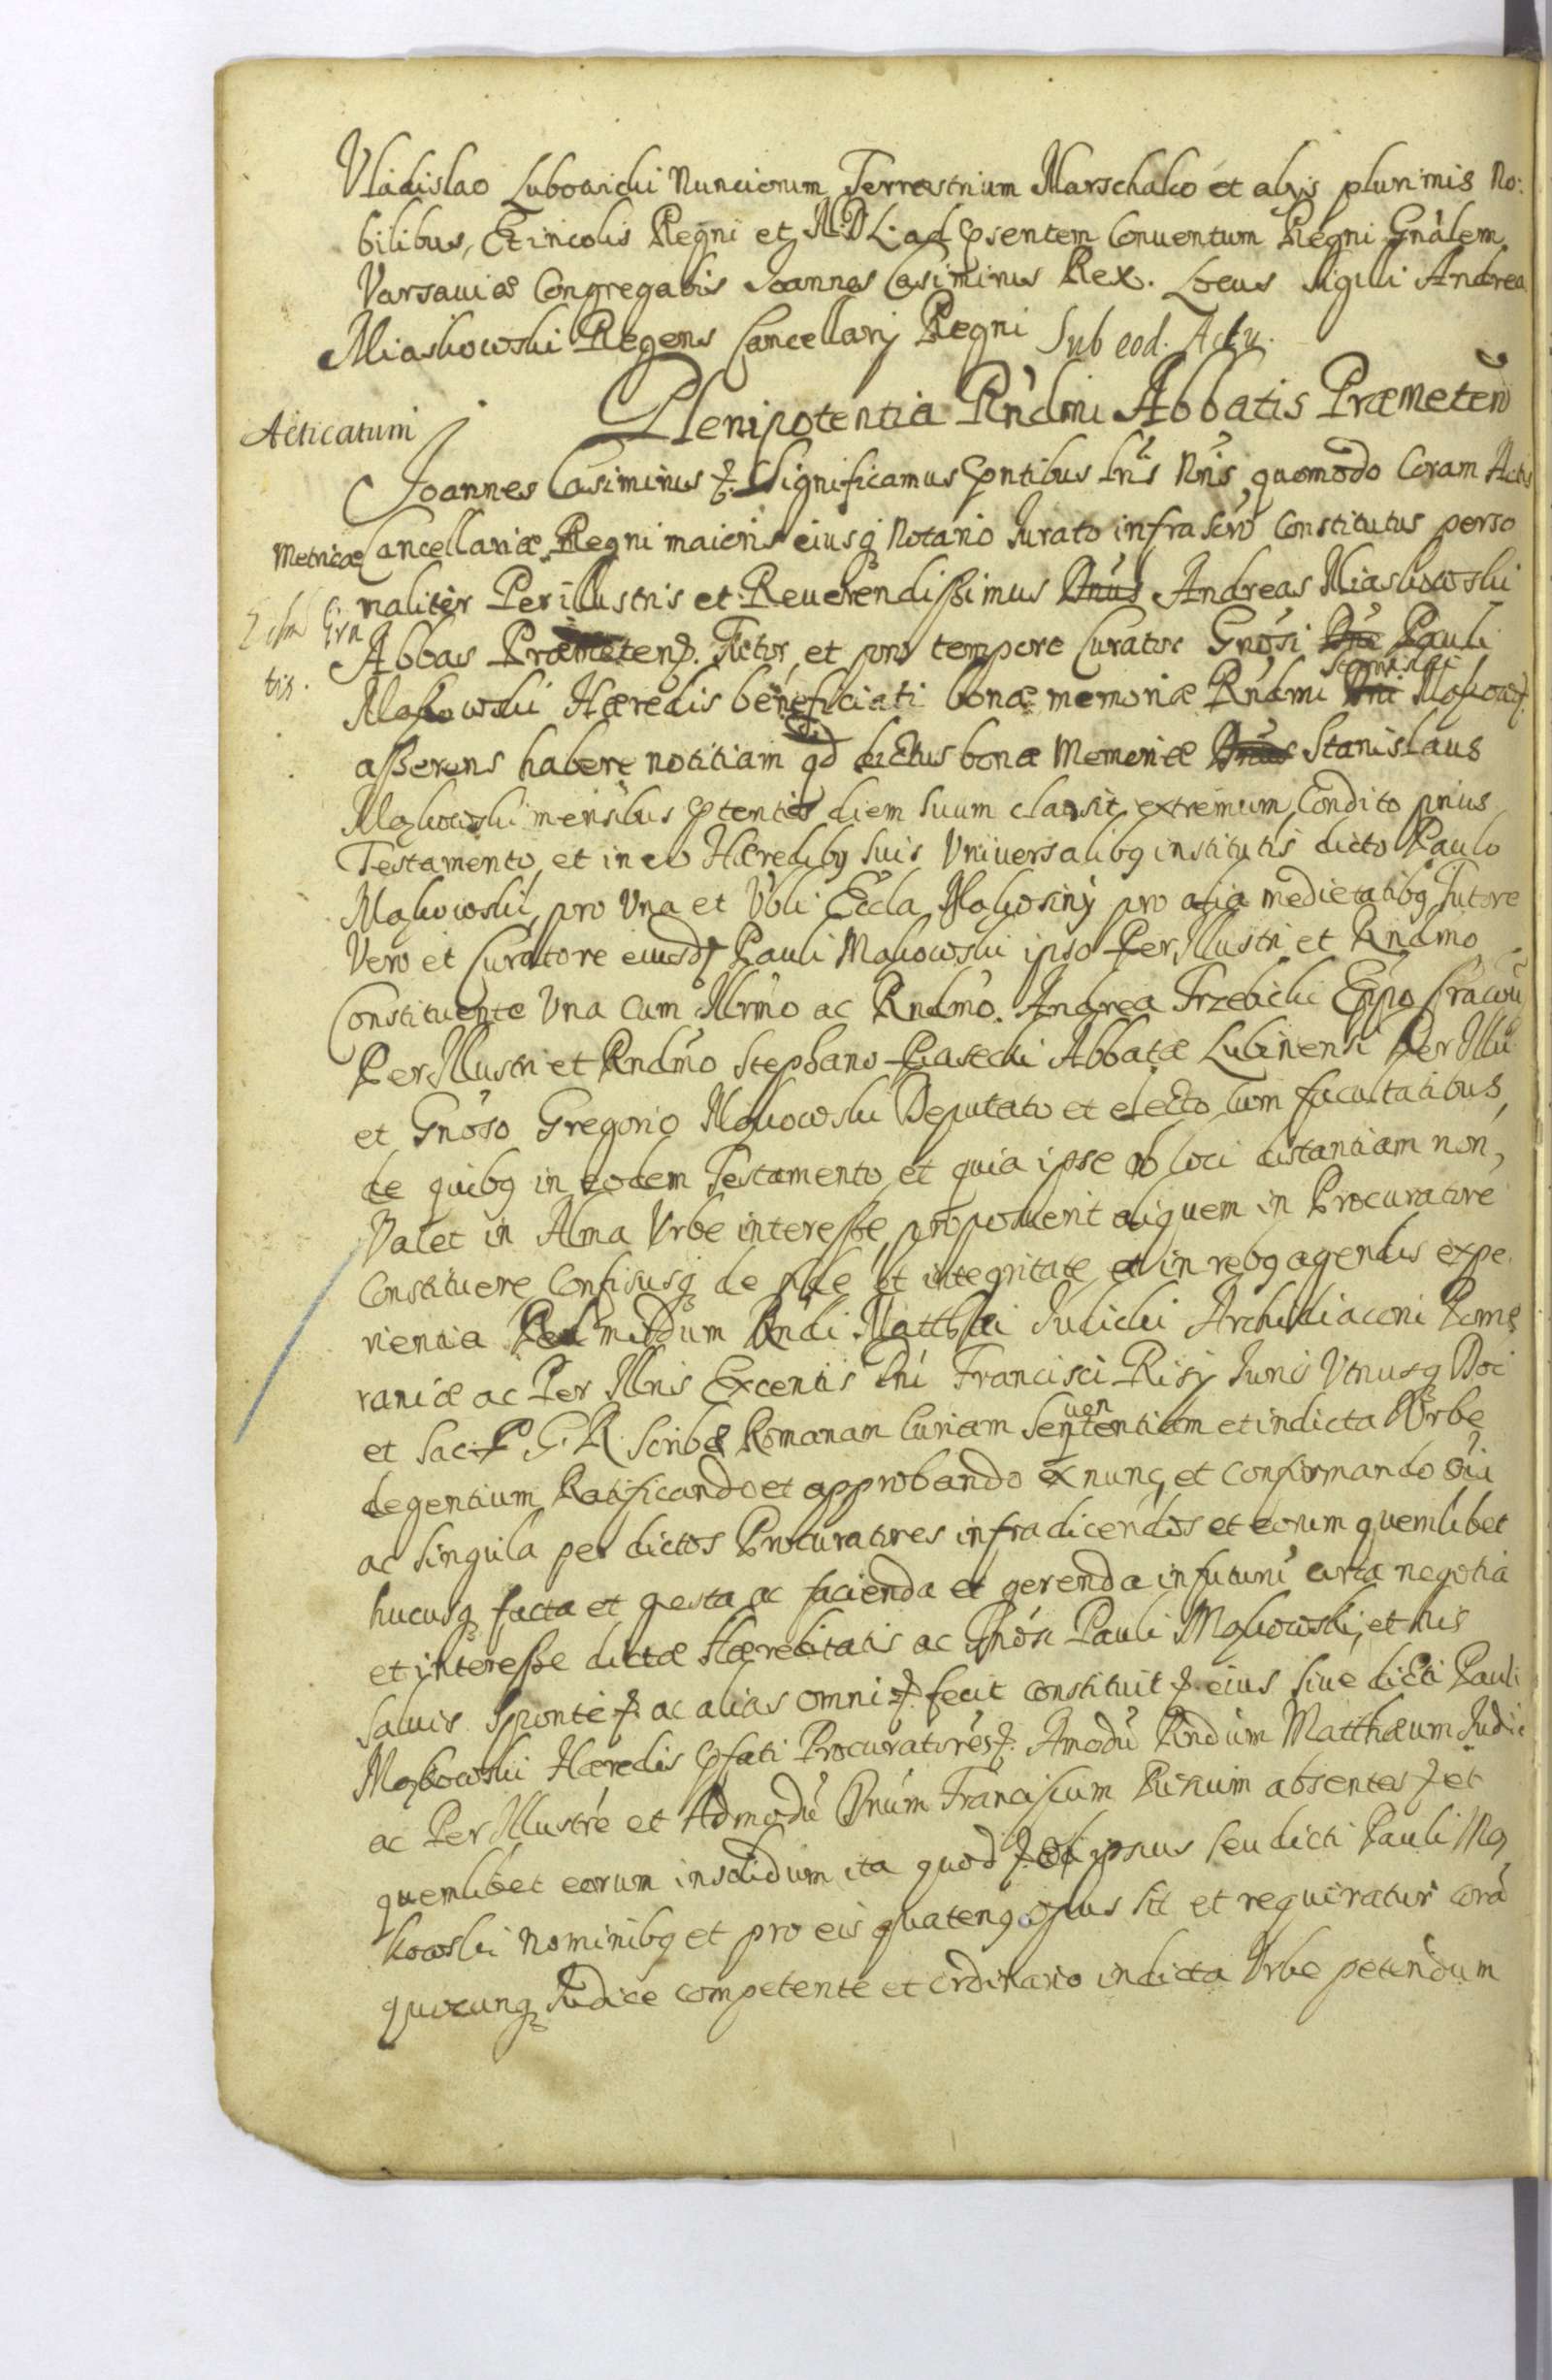 Vladislao Lubowicki Nunciorum Terrestrium Marschalco et alys plurimis No:
bilibus, Et incolis Regni et M.D.L. ad psentem Conuentum Regni Gnalem
Varsauiæ Congregatis Joannes Casimirus Rex. Locus Sigilli Andrea
Miaskowski Regens Cancellarij Regni Sub eod. Actu.
Plenipotentia Rndmi Abbatis Præmeten
Acticatum
Joannes Casimirus Significamus pntibus Lris Nris quomodo Coram Actis
Metricæ Cancellariæ Regni maioris eiusq Notario Jurato infra scro Constitutus perso
naliter Perillustris et Reuerendissimus Dnus Andreas Miaskowski
Abbas Præmeten. Tutor et pro tempore Curator Gnosi Pauli
tis.
Stanislai
Makowski Hæredis beneficiati bonæ memoriæ Rndmi Dni Makow
asserens habere notitiam qd dictus bonæ Memoriæ Dnus Stanislaus
Makowski mensibus diem suum clausit extremum Condito prius
Testamento et in eo Hæredibq suis Vniuersalibq institutis dicto Paulo
Makowski, pro Vna et Vbli Eccla pro alia medietatibq Tutore
Vero et Curatore eiusd Pauli Makowski ipso Per Illustri et Rndmo
Constituente Vna cum Illrmo ac Rndmo. Andrea Trzebicki Eppo Cracou
Per Illustri et Rndmo Stephano Piasecki Abbate Lubinensi Per Illu
et Gnoso Gregorio Makowski Deputato et electo cum facultatibus
de quibq in eodem Testamento et quia ipse ob loci distantiam non
Valet in Alma Vrbe interesse, proposuerit aliquem in Procuratore
Constituere Confisusq de fide et integritate et in rebq agendis expe
rientia Rndi Matthæi Judicki Archidiaconi Pome
raniæ ac Per Illris Excentis Dni Francisci Risy Juris Vtriusq Doc
uen
et Sac. P. G. R. Scribæ Romanam Curiam Sententiam et in dicta Vrbe
degentium Ratificando et approbando ex nunc, et confirmando oia
ac singula per dictos Procuratores infradicendos et eorum quemlibet
hucusq facta et gesta ac facienda et gerenda in futuru circa negotia
et interesse dictæ Hæreditatis ac Gnosi Pauli Makowski, et his
Saluis Sponte ac alias omni fecit constituit eius siue dicti Pauli
Makowski Hæredis pfati Procuratores. Amodu Rndum Matthæum Judic
ac Per Illustre et Admodu Dnum Franciscum Risium absentes et
quemlibet eorum insolidum ita quod ipsius seu dicti Pauli Ma
kowski nominibq et pro eis quatenq opus sit et requiratur cora
quocunq Judice competente et ordinario in dicta Vrbe petendum